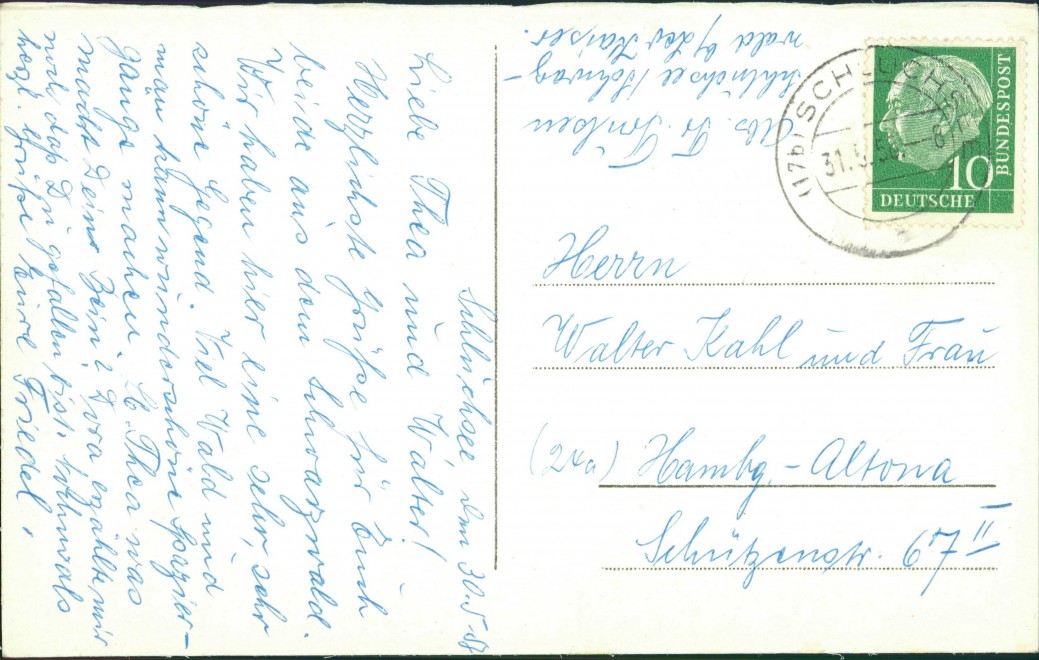 Schluchsee, den 30.5.57
Liebe Thea und Walter!
Herzlichste Grüße für Euch
beide aus dem Schwarzwald.
Wir haben hier eine sehr, sehr
schöne Gegend. Viel Wald und
man kann wunderschöne Spazier-
gänge machen. Lb. Thea was
macht Dein Bein? Dora erzählte mir
daß Du gefallen bist. Nochmals
herzl. Grüße Eure Friedel,
Abs. Fr.
Schluchsee / Schwarz-
wald b/ der Kaiser.
(17b) SCHLUCHSEE
31.5.5
10
DEUTSCHE
BUNDESPOST
Herrn
Walter Kahl und Frau
(24a) Hambg.-Altona
Schützenstr. 67 II